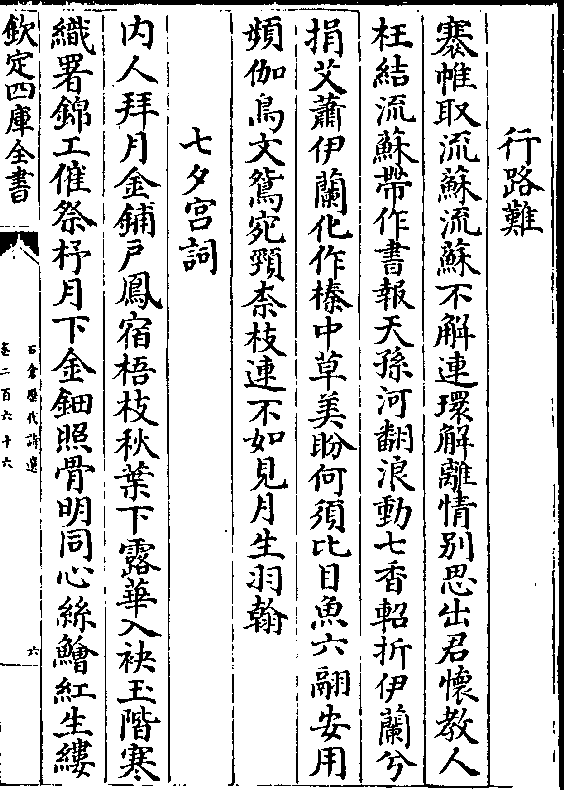 行路難
褰帷取流蘇流蘇不解連環解離情别思出君懷教人
枉結流蘇帶作書報天孫河翻浪動七香軺折伊蘭兮
捐艾蕭伊蘭化作榛中草美盼何須比目魚六翮安用
頻伽鳥文鴛宛頸柰枝連不如見月生羽翰
七夕宫詞
内人拜月金鋪户鳳宿梧枝秋葉下露華入袂玉階寒
織署錦工催祭杼月下金鈿照骨明同心絲鱠紅生縷
欽定四庫全書
石倉歷代詩選
卷二百六十六
六